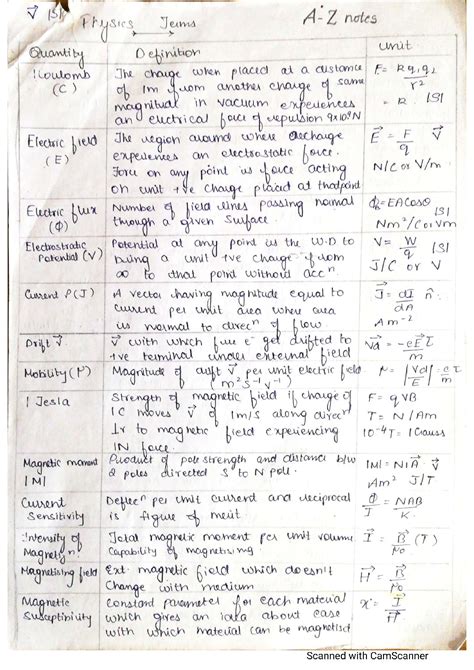 V⃗ |S| Physics Terms A-Z notes
Quantity Definition Unit
1 Coulomb The charge when placed at a distance E = Kq₁q₂
(C) of 1m from another charge of same r²
magnitud in vacuum experiences = R. |S|
an electrical force of repulsion 9x10⁹N
Electric field The region around where discharge E⃗ = F V⃗
(E) experiences an electrostatic force. q
Force on any point is force acting N/C or V/m
on unit +ve charge placed at that point
Electric flux Number of field lines passing normal ϕ = EACosθ
(Φ) through a given surface. |S|
Nm²/C or Vm
Electrostatic Potential at any point is the W.D to V = W |S|
Potential (V) bring a unit +ve charge from q
∞ to that point without accⁿ. J/C or V
Current ρ (J) A vector having magnitude equal to J⃗ = dI n̂.
current per unit area where area dA
is normal to direcⁿ of flow. Am⁻²
Drift V⃗. V⃗ with which free e⁻ get drifted to Vd = -eE⃗ τ
+ve terminal under external field m
Mobility (μ) Magnitude of drift V⃗ per unit electric field μ = |Vd| . eτ
(m²s⁻¹v⁻¹) |E| m
1 Tesla Strength of magnetic field if charge of F = qVB
1C moves V⃗ of 1m/s along direcⁿ T = N/Am
⊥r to magnetic field experiencing 10⁻⁴T = 1 Gauss
1N force.
Magnetic moment Product of pole strength and distance b/w |M| = NIA⃗ V⃗
|M| 2 poles directed S to N pole. Am² J/T
Current Deflecⁿ per unit current and reciprocal ϕ = NAB
Sensitivity is figure of merit. I K
Intensity of Total magnetic moment per unit volume. I⃗ = B⃗ (T)
Magnetisⁿ Capability of magnetising μ₀
Magnetising field Ext. magnetic field which doesn't H⃗ = B⃗
Change with medium μ₀
Magnetic Constant parameter for each material x = I⃗
Susceptinivity which gives an idea about ease H⃗
with which material can be magnetised
Scanned with CamScanner